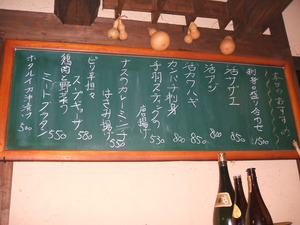 本日のおすすめ
刺身の盛り合わせ 1500
活サザエ 850
活アジ 850
活カワハギ 800
カンパチ刺身 800
手羽スティックの唐揚げ 530
ナスのカレーミンチ
はさみ揚げ 550
ピリ辛担々
スープギョーザ 580
鶏肉と野菜の
ミートグラタン 550
ホタルイカ沖漬け 500